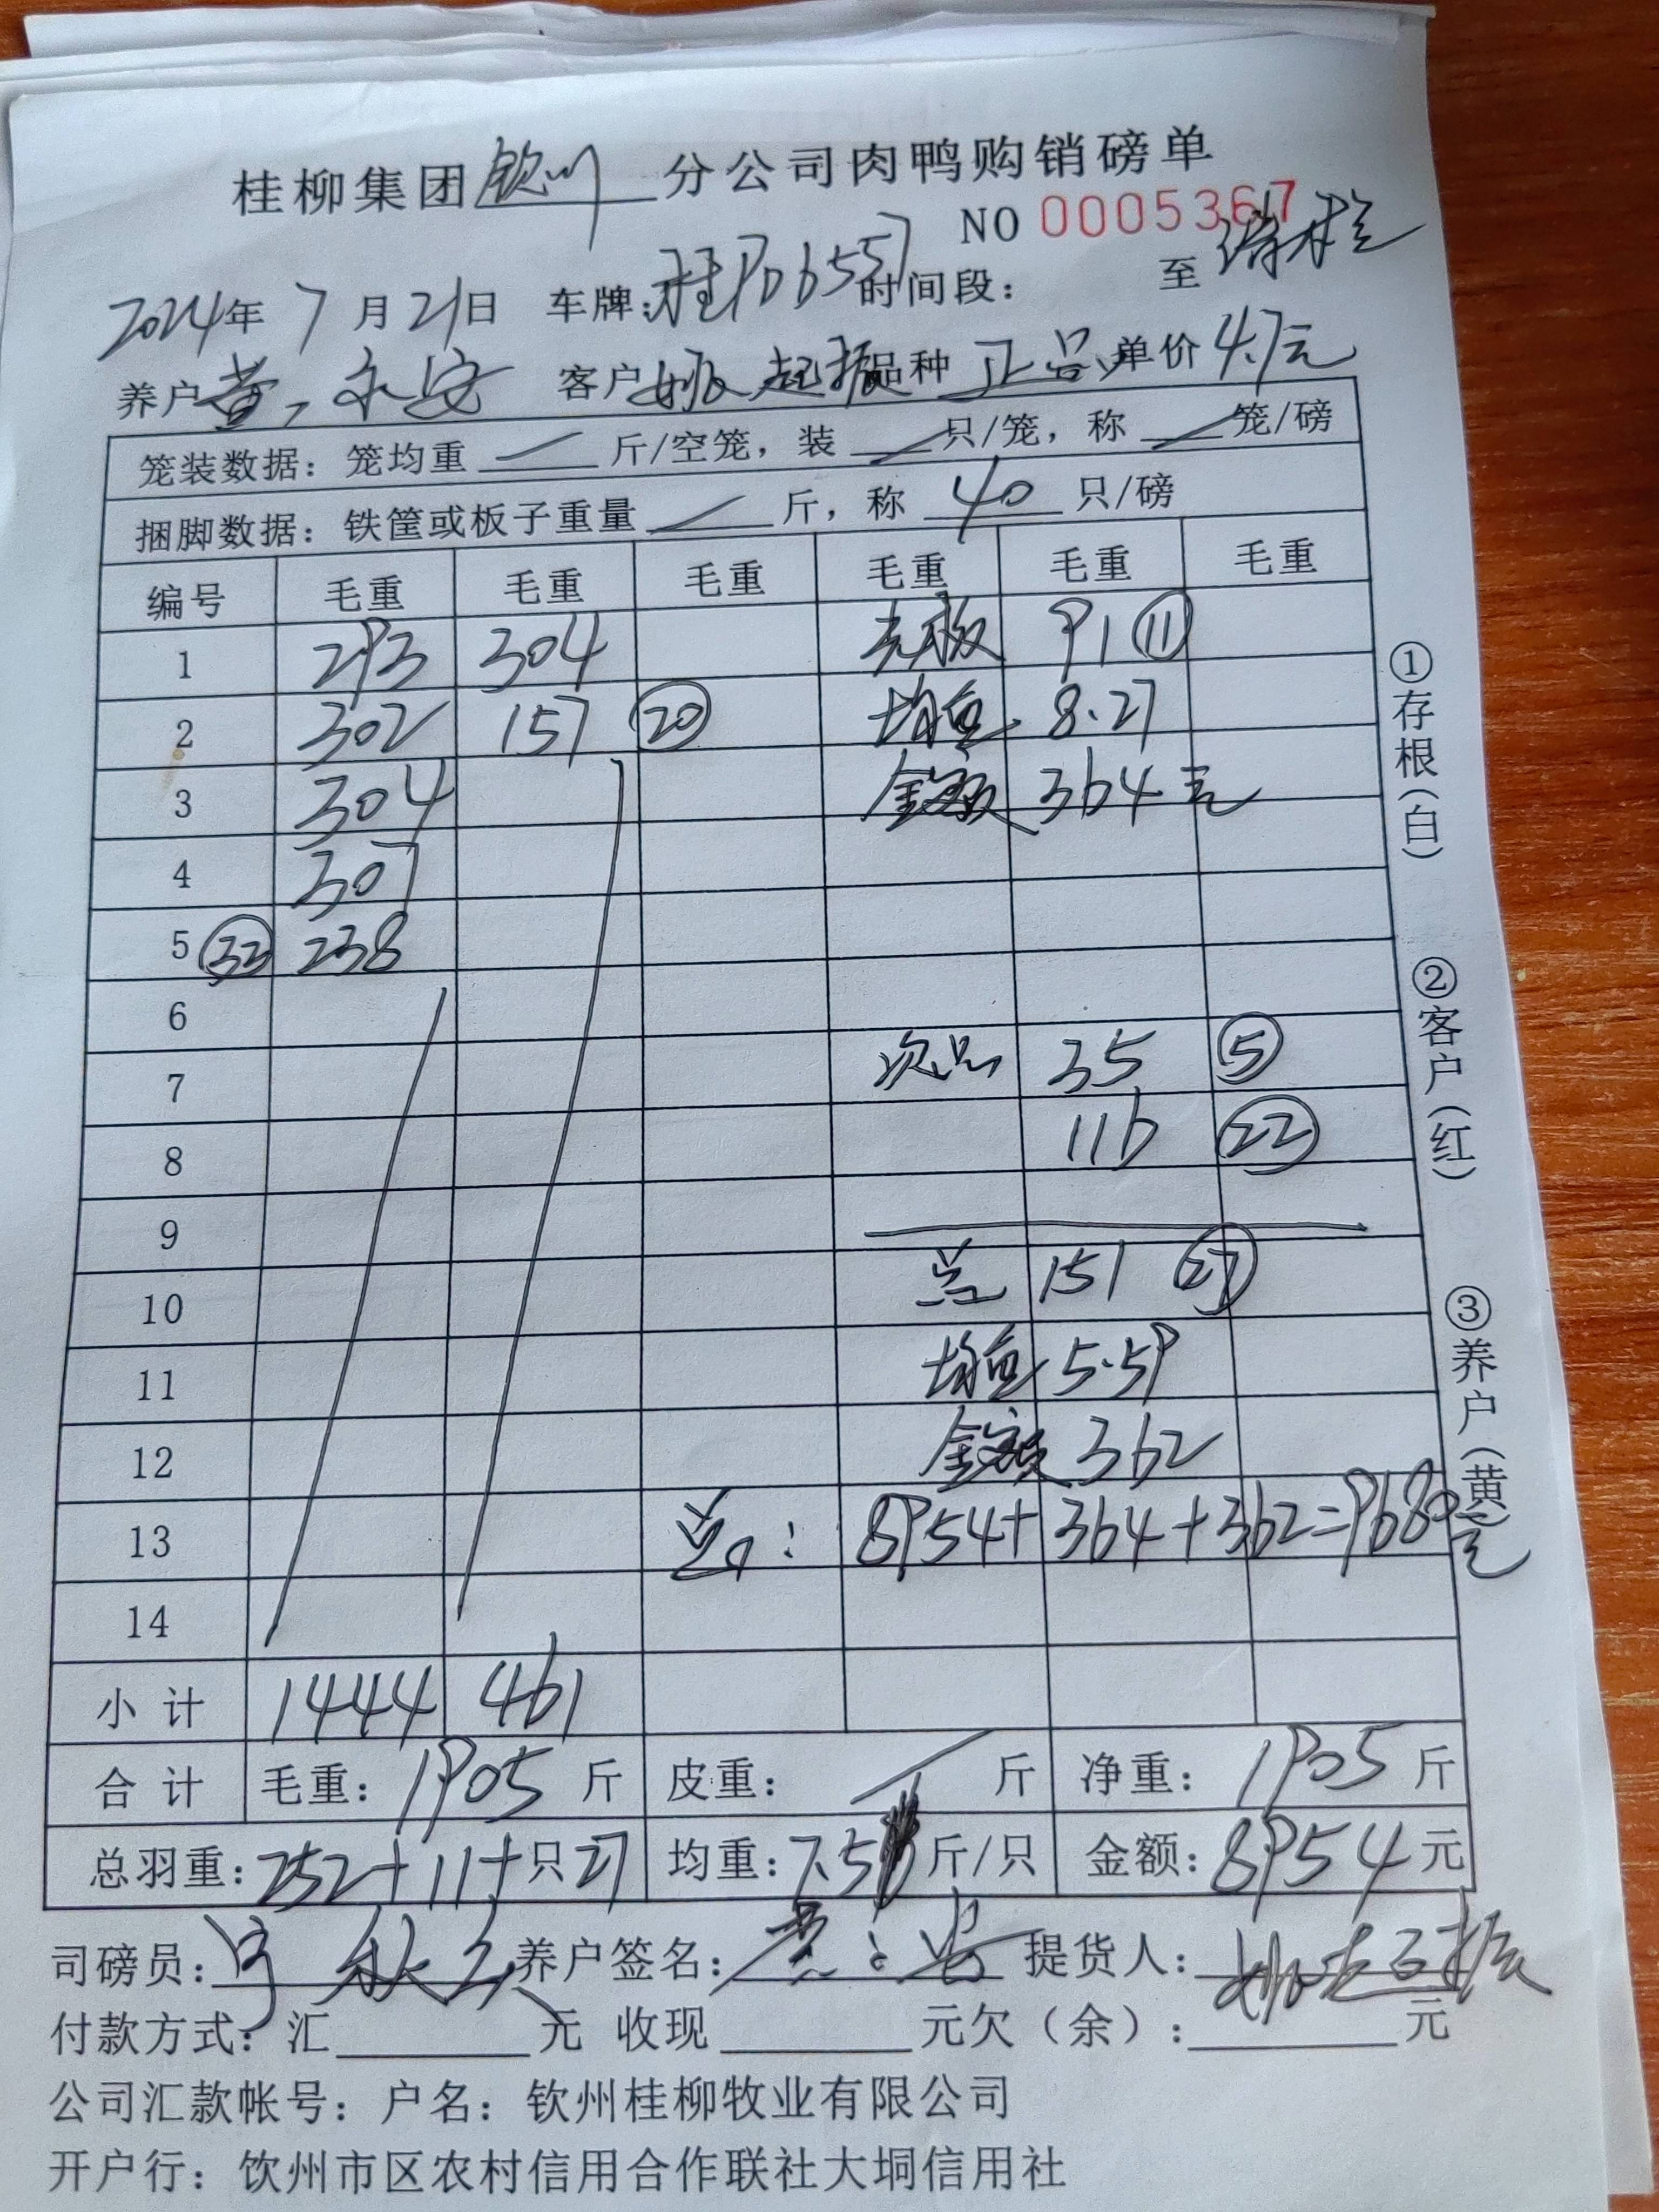 桂柳集团钦州分公司肉鸭购销磅单
NO 0005367
2024年 7 月 21日 车牌:桂PD6557时间段: 至
养户黄永安 客户姚起振品种 正品 单价 4.7元
笼装数据: 笼均重 / 斤/空笼, 装 / 只/笼, 称 / 笼/磅
捆脚数据: 铁筐或板子重量 / 斤, 称 40 只/磅
编号 毛重 毛重 毛重 毛重 毛重 毛重
1 293 304 毛板 91 ⑪
2 302 157 ⑳ 均重 8.27
3 304 金额 364元
4 307
5 ㉜ 238
6
7 次品 35 ⑤
8 116 ㉒
9
10 总 151 ㉗
11 均重 5.59
12 金额 362
13 总: 8954+364+362=9680元
14
小计 1444 461
合计 毛重: 1905 斤 皮重: / 斤 净重: 1905 斤
总羽重: 252+11+只27 均重: 7.5 斤/只 金额: 8954元
司磅员: 养户签名: 提货人: 姚起振
付款方式: 汇 元 收现 元欠(余): 元
公司汇款帐号: 户名: 钦州桂柳牧业有限公司
开户行: 饮州市区农村信用合作联社大垌信用社
①存根(白)
②客户(红)
③养户(黄)